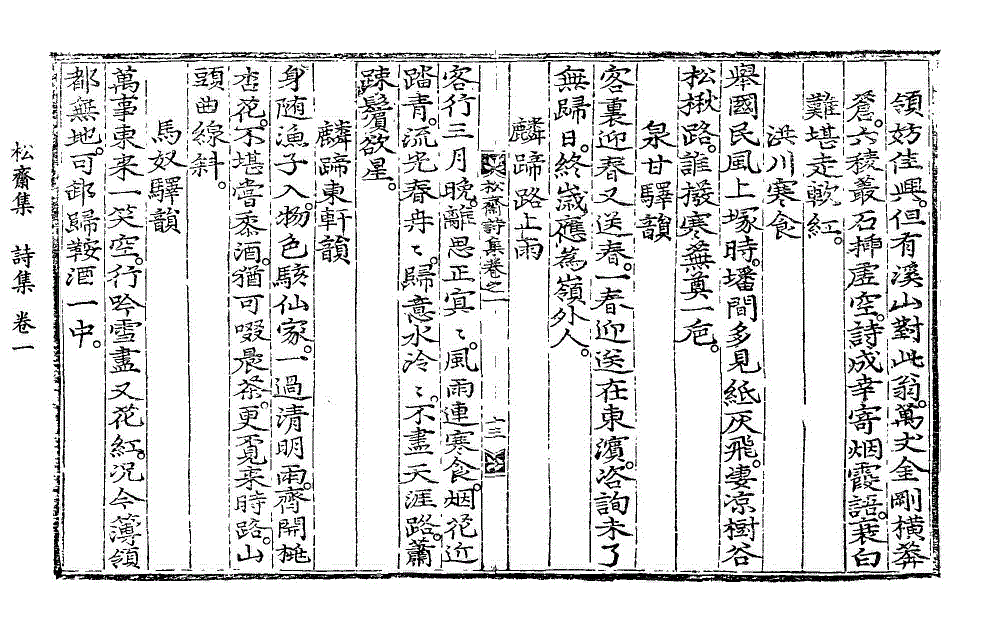 領妨佳興。但有溪山對此翁。萬丈金剛橫莽
蒼。六稜叢石揷虛空。詩成幸寄烟霞語。衰白
難堪走軟紅。
洪川寒食
舉國民風上塚時。墦間多見紙灰飛。凄凉樹谷
松楸路。誰撥寒蕪奠一巵。
泉甘驛韻
客裏迎春又送春。一春迎送在東濱。咨詢未了
無歸日。終歲應爲嶺外人。
麟蹄路上雨
松齋詩集卷之一
十三
客行三月晚。離思正冥〻。風雨連寒食。烟花近
踏靑。流光春冉〻。歸意水泠〻。不盡天涯路。蕭
踈鬢欲星。
麟蹄東軒韻
身随漁子入。物色駭仙家。一過清明雨。齊開
杏花。不堪嘗黍酒。猶可啜晨茶。更覔来時路。山
頭曲線斜。
馬奴驛韻
萬事東来一笑空。行吟雪盡又花紅。况今簿領
都無地。可郤歸鞍酒一中。
松齋集 詩集 卷一